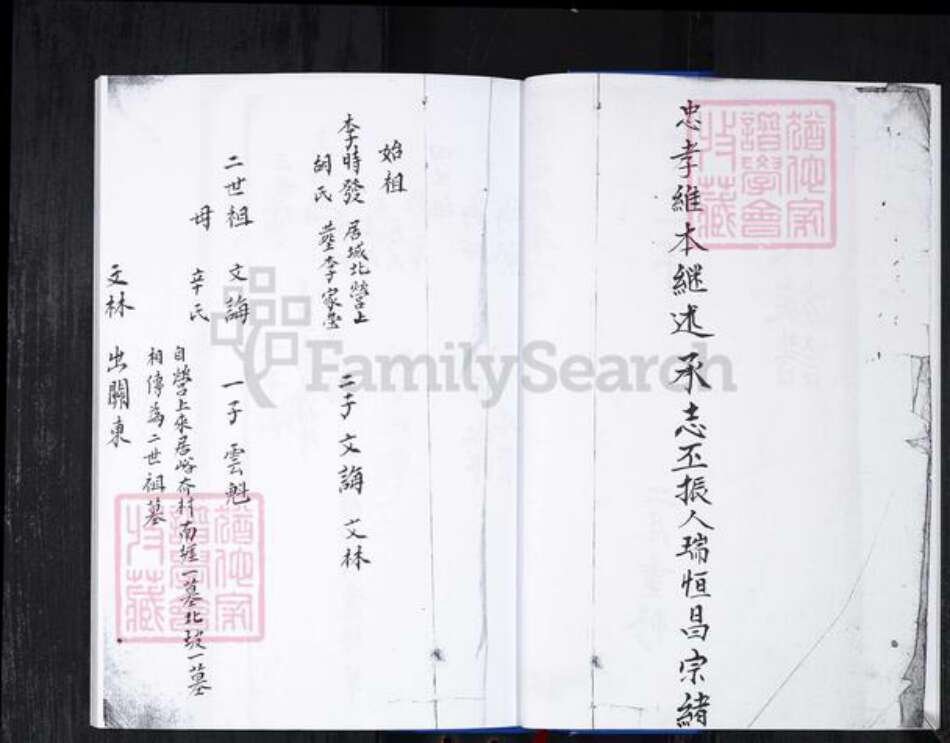 忠孝維本繼述承志丕振人瑞恒昌宗緒
始祖
李時發 居城北營上
胡氏 葬李家塋
二子文誨 文林
二世祖 文誨 一子雲魁
母 辛氏
自營上來居峪夼村南疃一墓北坡一墓
相傳為二世祖墓
文林 出關東
FamilySearch
譜學會
收藏